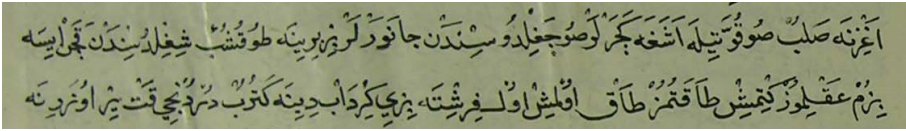 اَغْزِنَه صَلُبْ صُو قُوَّتِيلَه اَشَغَه كَچَرْلَرْ صُو جَغِلْدُوسِنْدَنْ جَانَوَرْلَرْ بِرْبِرِينَه طُوقُشُبْ شِغِلْدُسِنْدَنْ قَچَنْ اِيسَه
بِزُمْ عَقْلِمُوزْ كِتْمِشْ طَاقَتُمُزْ طَاقْ اُولْمِشْ اُولْ فِرِشْتَه بِزِي كِرْدَابْ دِبِينَه كَتُرُبْ دُرْدُنْجِي قَتْ يِرْ اُوزَرِنَه